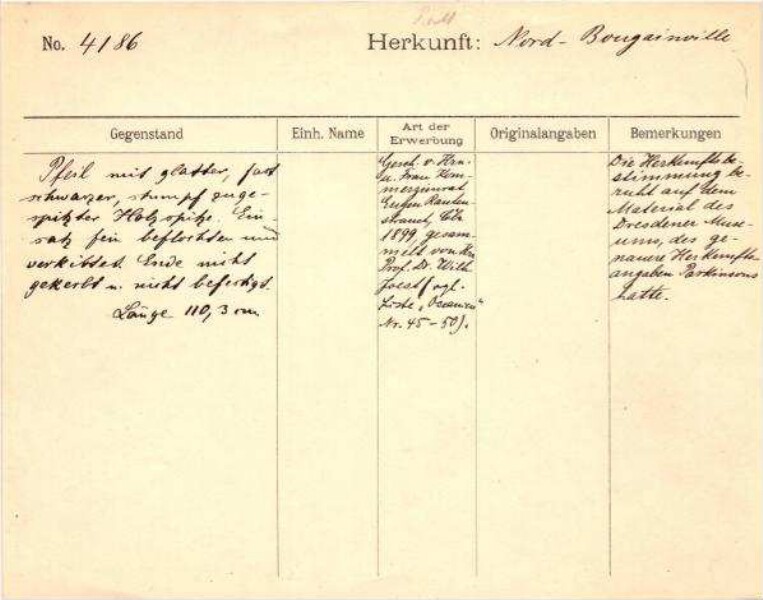 No. 4186
Herkunft: Nord-Bougainville
Gegenstand
Einh. Name
Art der Erwerbung
Originalangaben
Bemerkungen
Pfeil mit glatter, fast
schwarzer, stumpf zuge-
spitzter Holzspitze. Ein-
satz fein beflochten und
verkittet. Ende nicht
gekerbt u. nicht befestigt.
Länge 110,3 cm.
Gesch. v. Hrn.
u. Frau Kom-
merzienrat
Eugen Rauten-
strauch, Cöln
1899, gesam-
melt von Hrn
Prof. Dr. Wilh.
Joest (vgl.
Liste „Oceanien"
Nr. 45-50).
Die Herkunftsbe-
stimmung be-
ruht auf dem
Material des
Dresdener Muse-
ums, des ge-
nauere Herkunfts-
angaben Parkinsons
hatte.